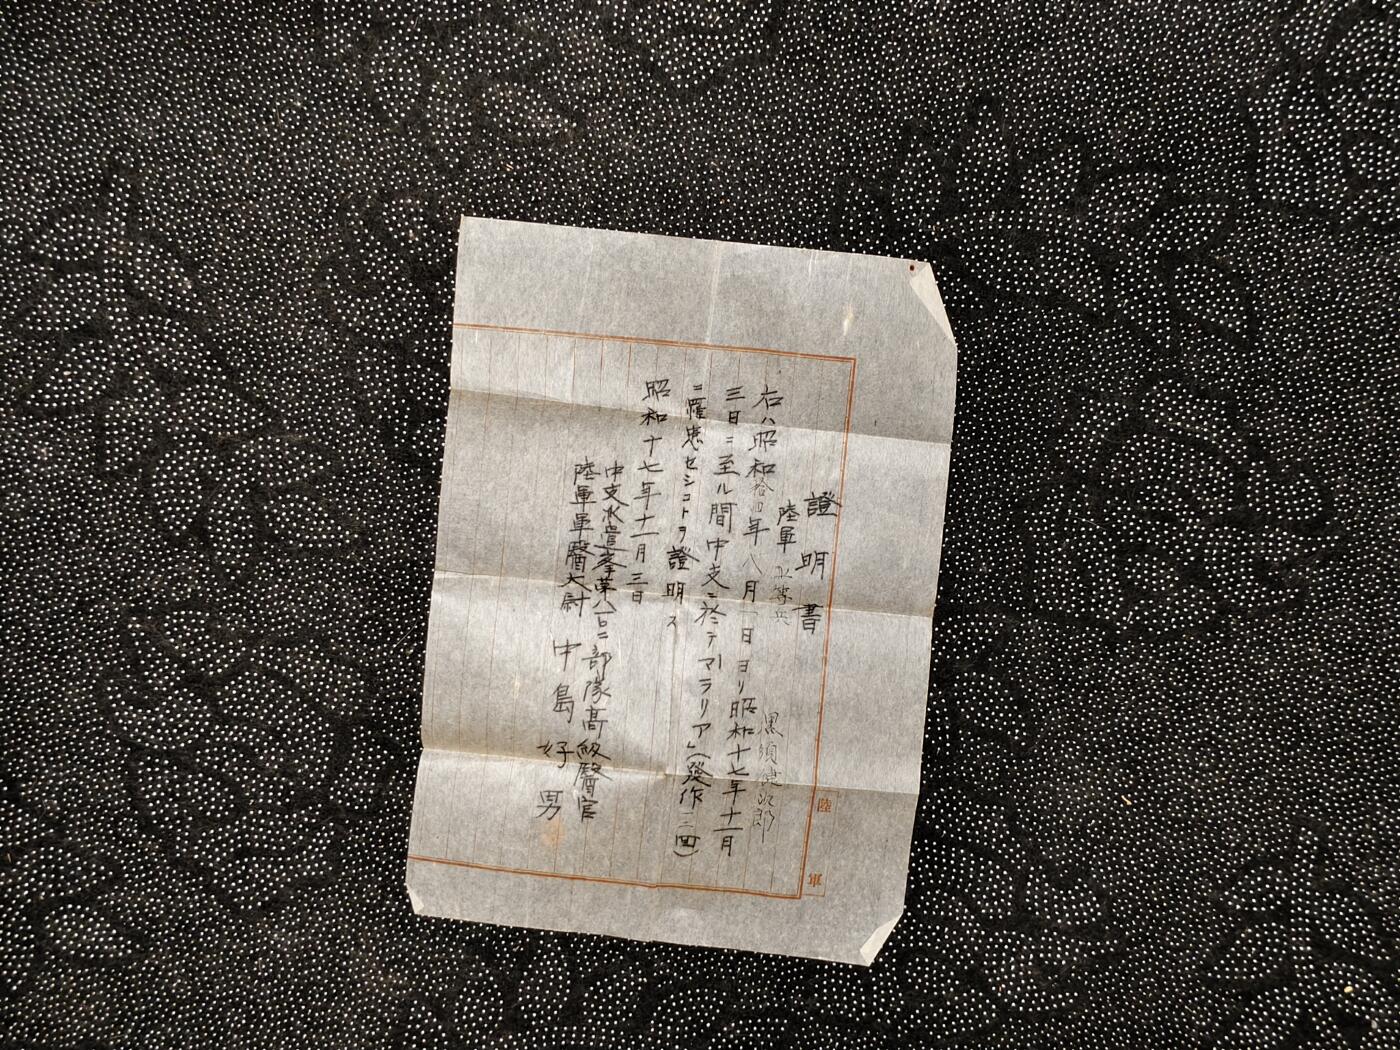 證明書
陸軍上等兵 黒須健次郎
右ハ昭和拾四年八月一日ヨリ昭和十七年十一月
三日ニ至ル間中支ニ於テ「マラリア」(發作三回)
ニ罹患セシコトヲ證明ス
昭和十七年十一月三日
中支派遣峯第八一〇二部隊高級醫官
陸軍軍醫大尉 中島好男
陸軍